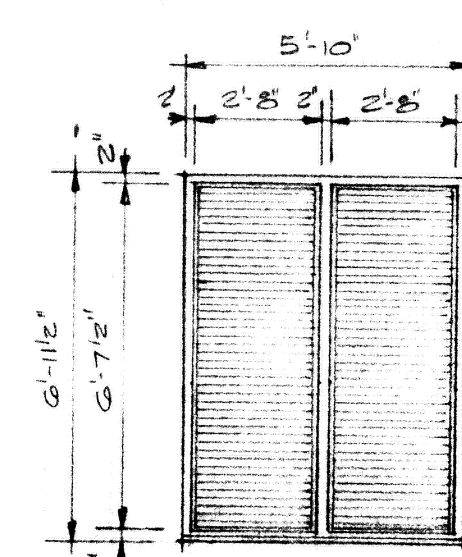 5'-10"
2" 2'-8" 2" 2'-8"
2"
6'-11 1/2"
6'-7 1/2"